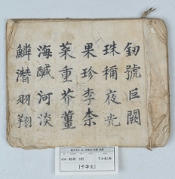 釰號巨闕
珠稱夜光
果珍李柰
菜重芥薑
海醎河淡
鱗潛羽翔